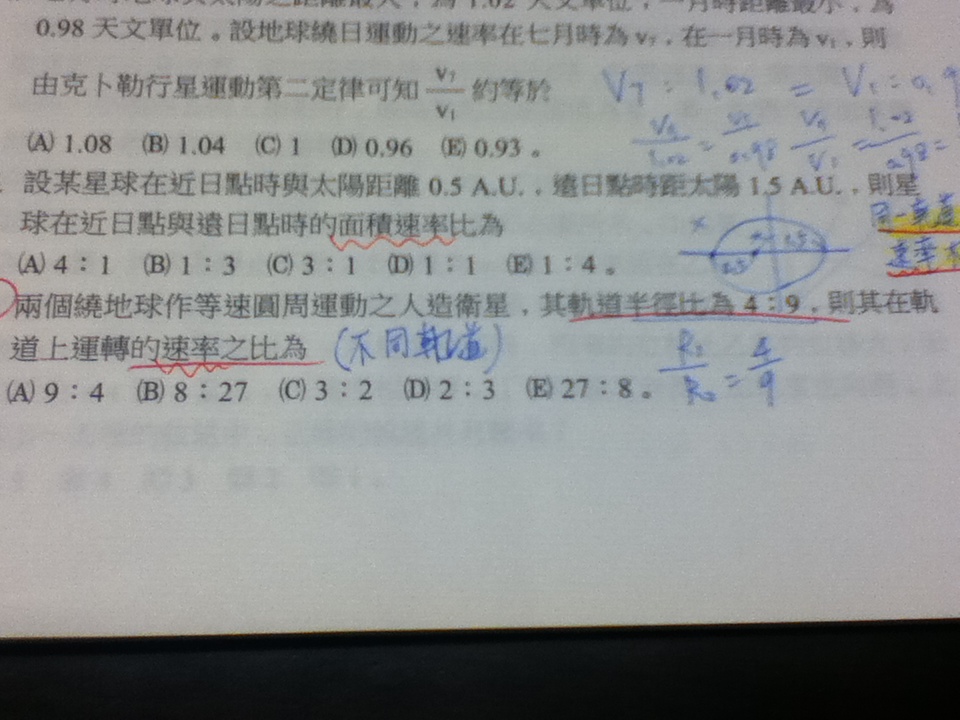 天文單位,一月時距離最小,為
0.98 天文單位。設地球繞日運動之速率在七月時為v₇,在一月時為v₁,則
由克卜勒行星運動第二定律可知 v₇/v₁ 約等於
V7:1.02 = V1:0.9
(A) 1.08 (B) 1.04 (C) 1 (D) 0.96 (E) 0.93。
設某星球在近日點時與太陽距離 0.5 A.U.,遠日點時距太陽 1.5 A.U.,則星
球在近日點與遠日點時的面積速率比為
同一軌道
速率
(A) 4:1 (B) 1:3 (C) 3:1 (D) 1:1 (E) 1:4。
兩個繞地球作等速圓周運動之人造衛星,其軌道半徑比為 4:9,則其在軌
道上運轉的速率之比為 (不同軌道)
(A) 9:4 (B) 8:27 (C) 3:2 (D) 2:3 (E) 27:8。